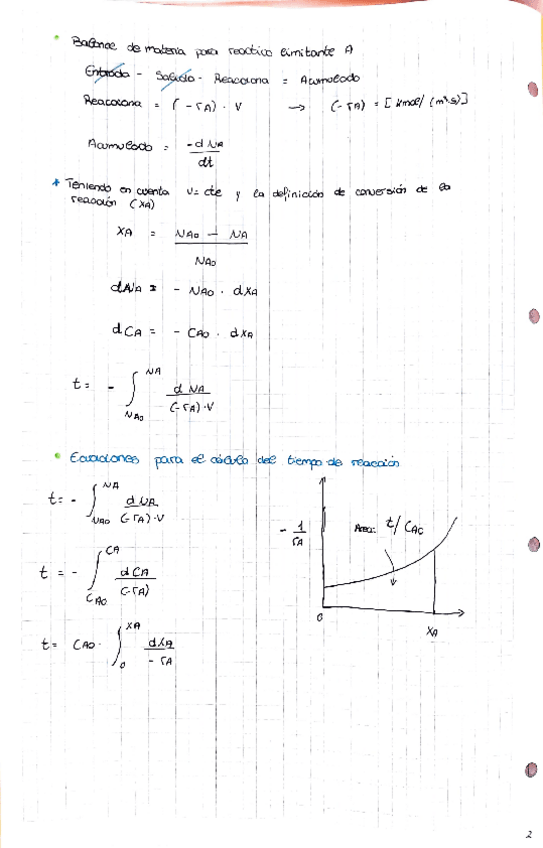 Balance de materia para reactivo limitante A
Entrada - Salida - Reacciona = Acumulado
Reacciona = (-rA) · V → (-rA) = [kmol/(m³·s)]
Acumulado = -dNA/dt
* Teniendo en cuenta V= cte y la definición de conversión de la
reacción (XA)
XA = (NA0 - NA)/NA0
dNA = - NA0 · dXA
dCA = - CA0 · dXA
t = - ∫ NA NA0 dNA/((-rA)·V)
Ecuaciones para el cálculo del tiempo de reacción
t = - ∫ NA NA0 dNA/((-rA)·V)
t = - ∫ CA CA0 dCA/(-rA)
t = CA0 · ∫ XA 0 dXA/(-rA)
- 1/rA
Area: t/CA0
0
XA
2